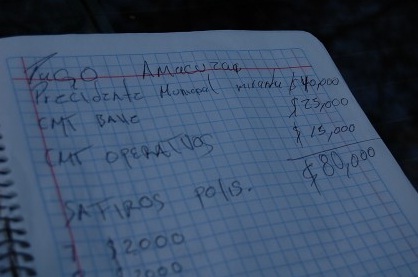 Pago Amacuzac
Precidente Municipal miranda $40,000
CMT BAUC $25,000
CMT OPERATIVOS $15,000
$80,000
SATIROS POLS.
$2000
$2000